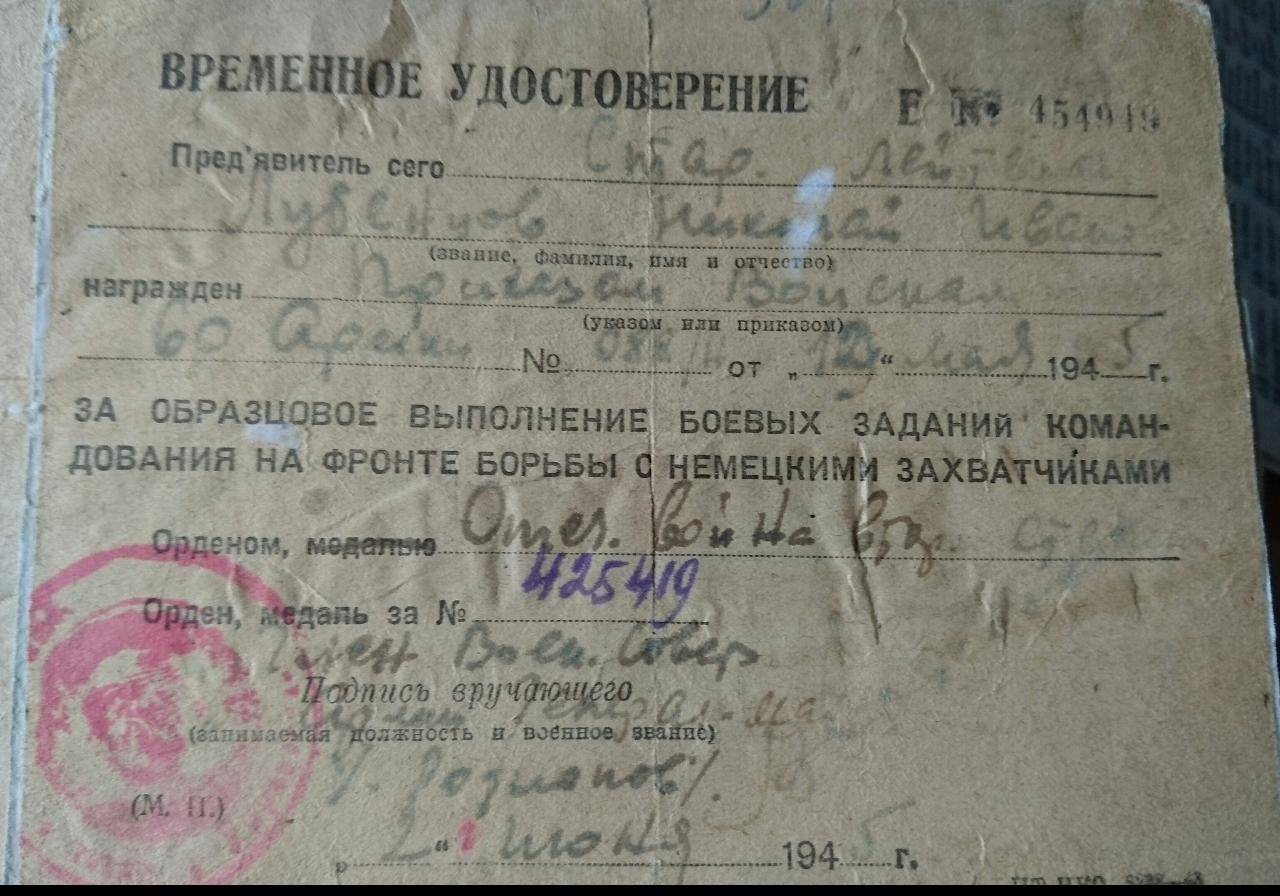 ВРЕМЕННОЕ УДОСТОВЕРЕНИЕ
Е № 454949
Пред'явитель сего Стар. Лейтена
Лубенцов Николай Иван
(звание, фамилия, имя и отчество)
награжден Приказом Войскам
(указом или приказом)
60 Армии № 088/н от „ “ мая 1945 г.
ЗА ОБРАЗЦОВОЕ ВЫПОЛНЕНИЕ БОЕВЫХ ЗАДАНИЙ КОМАН-
ДОВАНИЯ НА ФРОНТЕ БОРЬБЫ С НЕМЕЦКИМИ ЗАХВАТЧИКАМИ
Орденом, медалью Отеч. война втор.
425419
Орден, медаль за №
Член Воен. Совета
Подпись вручающего
Армии Генерал-ма
(занимаемая должность и военное звание)
(М. П.)
„2“ июня 1945 г.